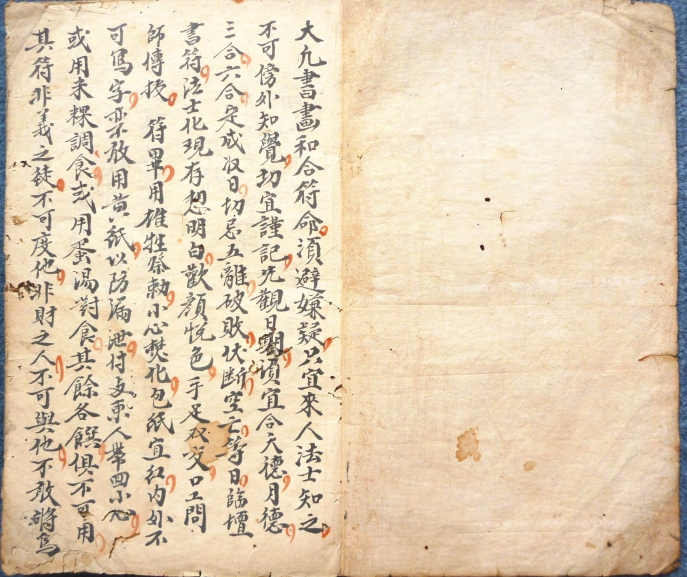 大凡書畫和合符命須避嫌疑只宜來人法士知之
不可傍外知覺切宜謹記先觀日期須宜合天德月德
三合六合定成收日切忌五離破敗伏斷空亡等日臨壇
書符法士化現存想明白歡顏悅色手足衣交口問
師傳授符畢用雄牲祭勅小心焚化包紙宜紅內外不
可寫字亦放用黃紙以防漏泄付与來人帶回小心
或用米粿調食或用蛋湯對食其餘各饌俱不可用
其符非義之徒不可度他非財之人不可與他不敢將為